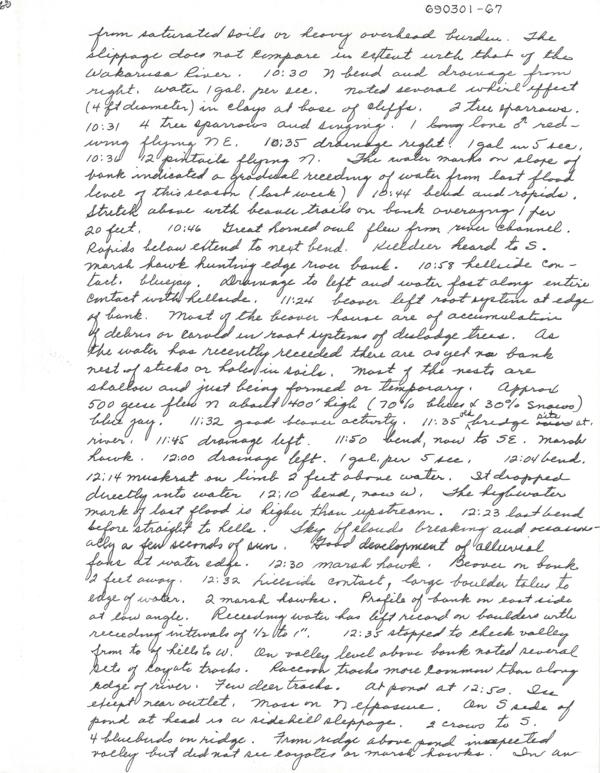 690301-67
from saturated soils or heavy overhead burden. The
slippage does not compare in extent with that of the
Wakarusa River. 10:30 N bend and drainage from
right. water 1 gal. per sec. noted several whirl effect
(4 ft diameter) in clays at base of cliffs. 2 tree sparrows.
10:31 4 tree sparrows and singing. 1 lone ♂ red-
wing flying NE. 10:35 drainage right 1 gal in 5 sec.
10:36 12 pintails flying N. The water marks on slope of
bank indicated a gradual receding of water from last flood
level of this season (last week) 10:44 bend and rapids.
Stretch above with beaver trails on bank averaging 1 per
20 feet. 10:46 Great horned owl flew from river channel.
Rapids below extend to next bend. Killdeer heard to S.
marsh hawk hunting edge river bank. 10:58 hillside con-
tact. bluejay. Drainage to left and water fast along entire
contact with hillside. 11:24 beaver left root system at edge
of bank. Most of the beaver house are of accumulation
of debris or carved in root systems of dislodge trees. As
the water has recently receeded there are as yet no bank
nest of sticks or holes in soils. Most of the nests are
shallow and just being formed or temporary. Approx
500 geese flew N about 400' high (70% blues & 30% snows)
blue jay. 11:32 good beaver activity. 11:35 old bridge site at
river. 11:45 drainage left. 11:50 bend, now to SE. marsh
hawk. 12:00 drainage left. 1 gal. per 5 sec. 12:04 bend.
12:14 muskrat on limb 2 feet above water. It dropped
directly into water 12:10 bend, now W. The highwater
mark of last flood is higher than upstream. 12:23 last bend
before straight to hills. Sky of clouds breaking and occasion-
ally a few seconds of sun. Good development of alluvial
fans at water edge. 12:30 marsh hawk. Beaver on bank
2 feet away. 12:32 hillside contact, large boulder talus to
edge of water. 2 marsh hawks. Profile of bank on east side
at low angle. Receeding water has left record on boulders with
receeding intervals of 1/2 to 1". 12:35 stopped to check valley
from to of hills to W. On valley level above bank noted several
sets of coyote tracks. Raccoon tracks more common than along
edge of river. Few deer tracks. At pond at 12:50. Ice
except near outlet. Moss on N exposure. On S side of
pond at head is a sidehill slippage. 2 crows to S.
4 bluebirds on ridge. From ridge above pond inspected
valley but did not see coyotes or marsh hawks. In an